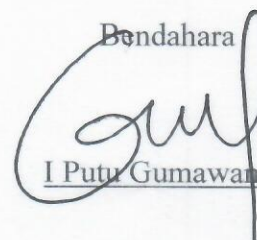 Bendahara
I Putu Gumawan